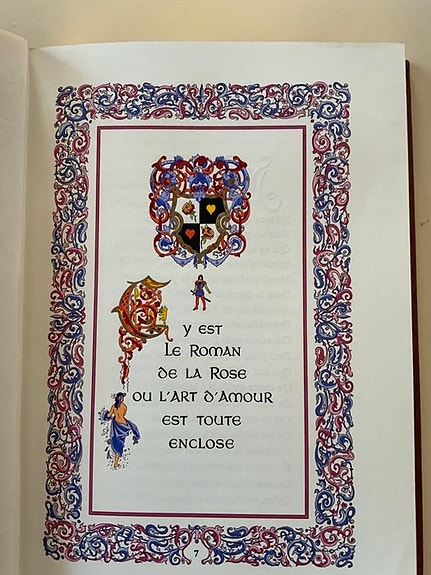 Cy est
Le Roman
de la Rose
ou l'art d'amour
est toute
enclose
7